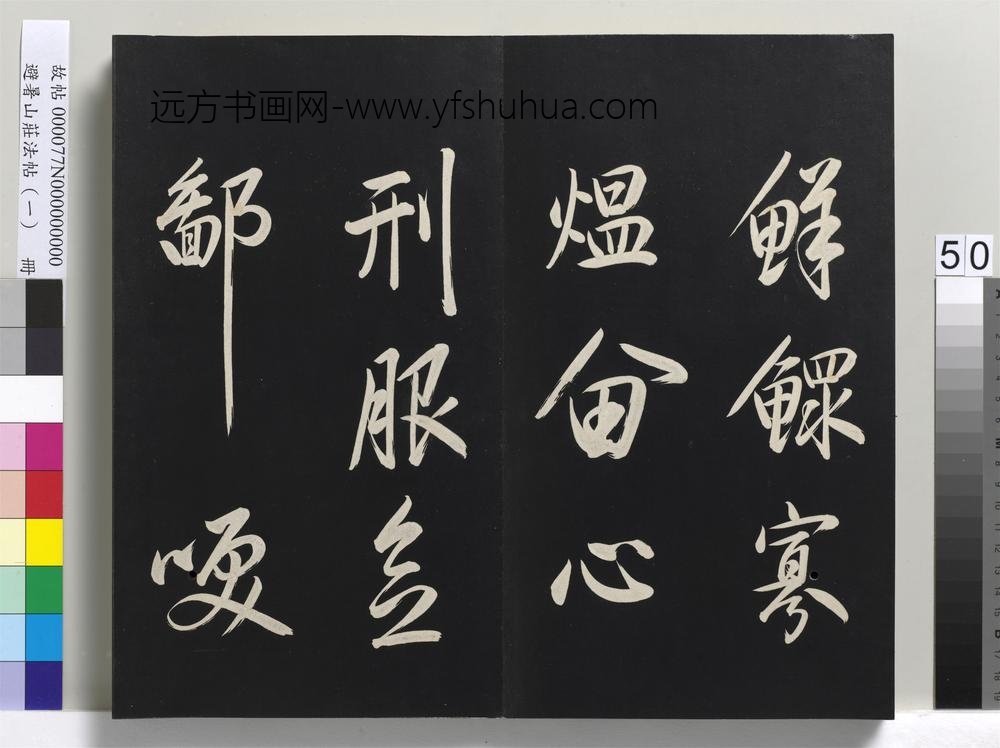 远方书画网-www.yfshuhua.com
鮮鰥寡
熅畣心
刑服立
鄙哽
故帖 000077N000000000
避暑山莊法帖（一） 冊
50